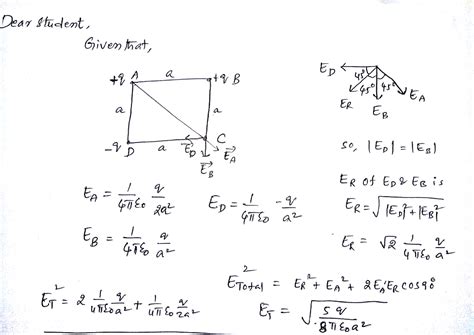 Dear student,
Given that,
+q A a +q B
a a
-q D a C
E⃗_D E⃗_A
E⃗_B
E_D 45° 45° 45° E_A
E_R E_B
so, |E_D| = |E_B|
E_R of E_D & E_B is
E_R = √(|E_D|² + |E_B|²)
E_R = √2 1/(4πε₀) q/a²
E_A = 1/(4πε₀) q/(2a²)
E_D = 1/(4πε₀) -q/a²
E_B = 1/(4πε₀) q/a²
E²_Total = E_R² + E_A² + 2E_A E_R cos90°
E_T² = 2 1/(4πε₀) q/a² + 1/(4πε₀) q/(2a²)
E_T = √(5q/(8πε₀a²))